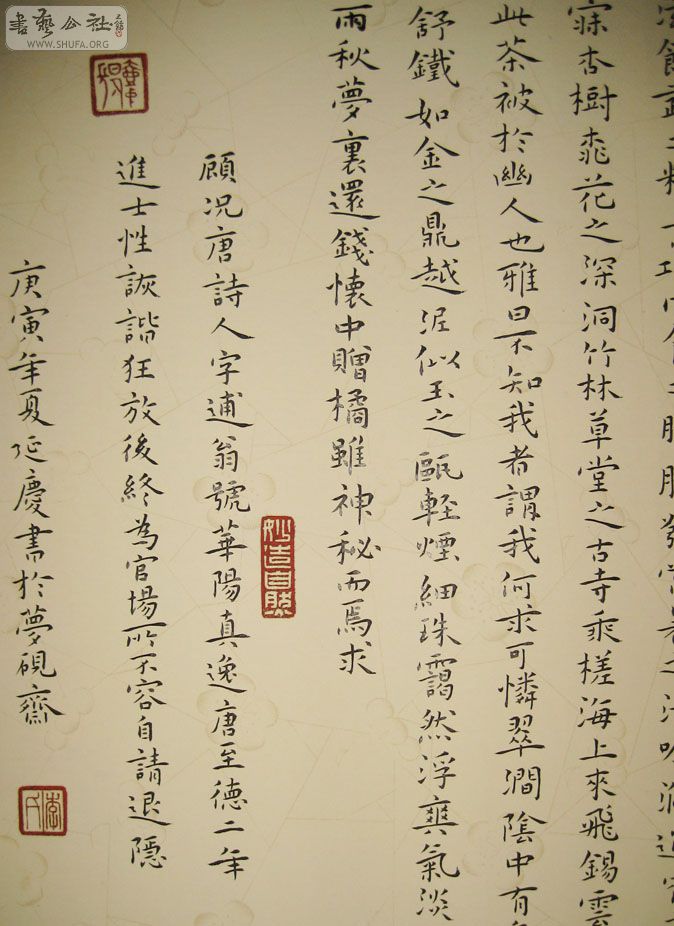 寐杏樹桃花之深洞竹林草堂之古寺乘槎海上來飛錫雲
此茶被於幽人也雅曰不知我者謂我何求可憐翠澗陰中有
舒鐵如金之鼎越泥似玉之甌輕煙細珠靄然浮爽氣淡
雨秋夢裏還錢懷中贈橘雖神秘而焉求
妙造自然
顧况唐詩人字逋翁號華陽真逸唐至德二年
進士性詼諧狂放後終為官場所不容自請退隱
庚寅年夏延慶書於夢硯齋
李氏
書藝公社
WWW.SHUFA.ORG